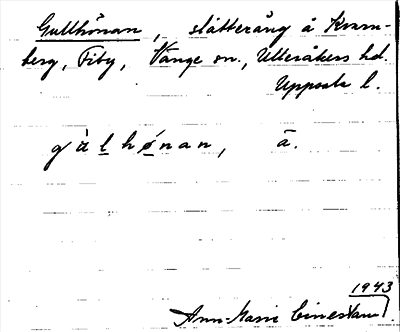 Gullhönan, slåtteräng å Kvarn-
berg, Fiby, Vänge sn., Ulleråkers hd.
Uppsala l.
gàlhønan, ā.
1943
Ann-Marie